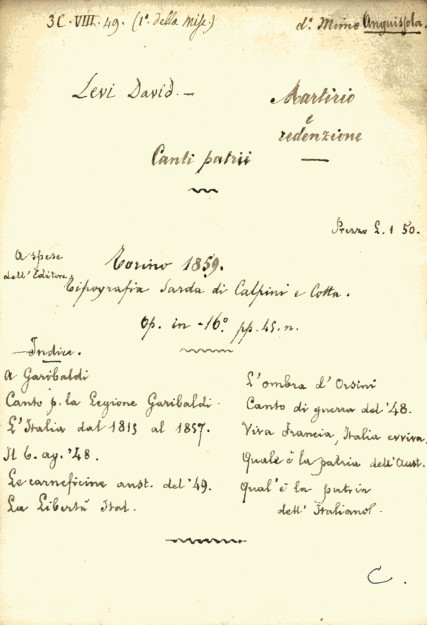 3C. VIII. 49. (1ª della Misc.)
d.º Mimo Anguissola.
Levi David. —
Martirio
e
redenzione
Canti patrii
Prezzo L. 1 50.
A spese
dell'Editore
Torino 1859.
Tipografia Sarda di Calpini e Cotta.
Op. in -16º pp. 45. n.
Indice.
A Garibaldi
Canto p. la Legione Garibaldi.
L'Italia dal 1815 al 1857.
Il 6. ag. '48.
Le carneficine aust. del '49.
La Libertà Ital.
L'ombra d'Orsini
Canto di guerra del '48.
Viva Francia, Italia evviva.
Quale è la patria dell'Aust.
Qual'è la patria
dell'Italiano?.
C.